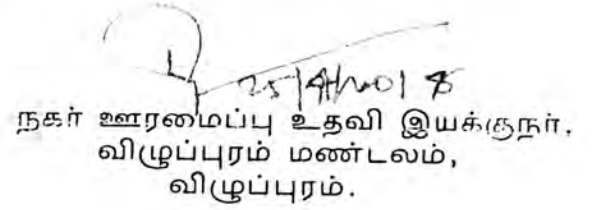 25/4/2018
நகர் ஊரமைப்பு உதவி இயக்குநர்,
விழுப்புரம் மண்டலம்,
விழுப்புரம்.